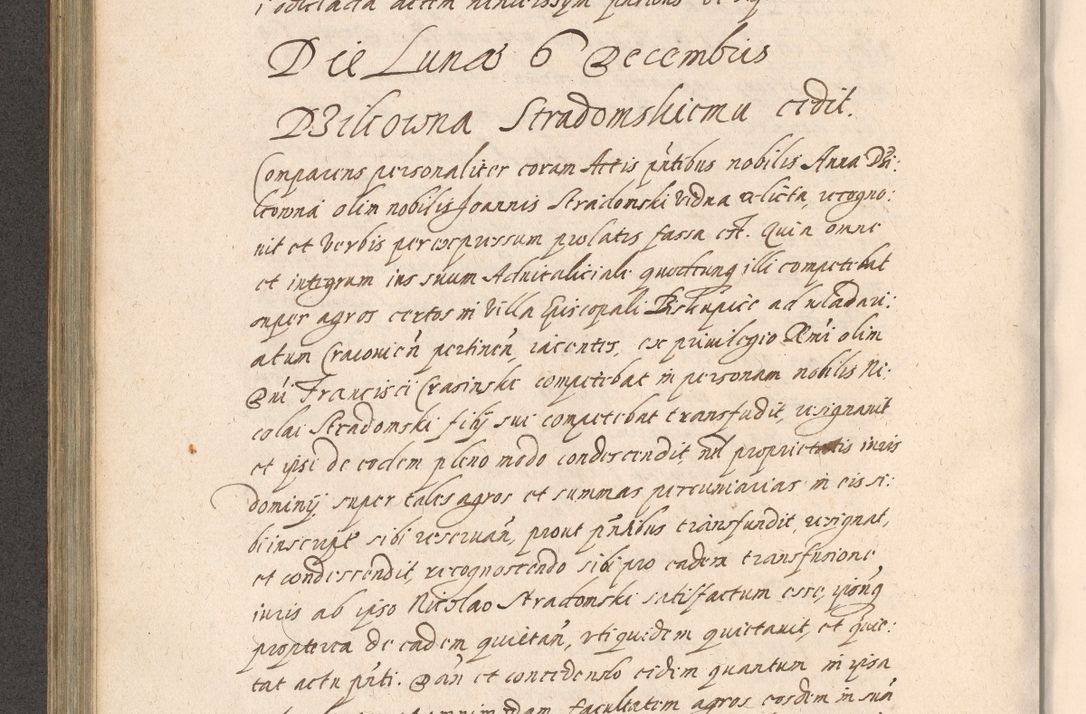 Die Lunae 6 Decembris
Dzikowna Stradomskiemu cedit.
Comparens personaliter coram Actis pñtibus nobilis Anna Dzi:
kowna olim nobilis Joannis Stradomski vidua relicta, recogno:
uit et verbis per expressum prolatis fassa est. Quia omne
et integrum ius suum Aduitaliciale quodcunq illi competebat
super agros certos in villa Episcopali Biskupice ad uladavi:
atum Cracouien̄ pertinen̄, iacentes, ex priuilegio Rm̃i olim
Dñi Francisci Crasinski competebat in personam nobilis Ni:
colai Stradomski filij sui competebat transfudit, resignauit
et ipsi de eodem pleno modo condescendit, nil proprietatis iuris
dominij super tales agros et summas pecuniarias in eis si:
bi inscript sibi reseruan̄, prout pñtibus transfundit, resignat,
et condescendit, recognoscendo sibi pro eadem transfusione
iuris ab ipso Nicolao Stradomski satisfactum esse, ipsũq
propterea de eadem quietan̄, uti quidem quietauit, et quie:
tat actu pñti. Dan̄ et concedendo eidem quantum in ipsa
facultatem agros eosdem in suã